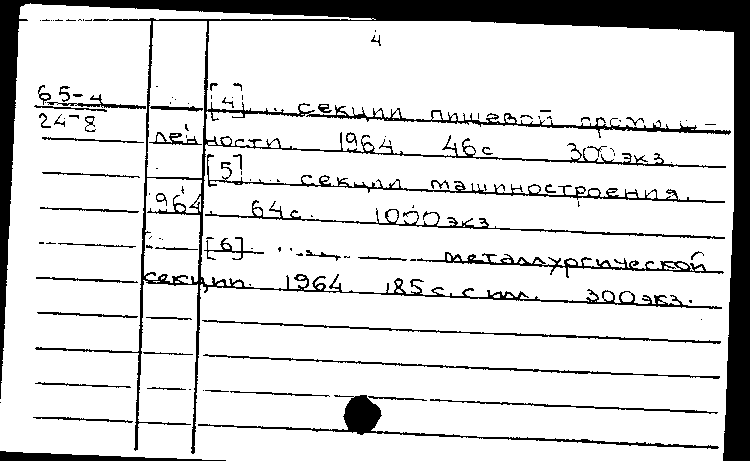 4
65-4
24-8
[4] ... секции пищевой промыш-
ленности. 1964. 46с 300экз.
[5] ... секции машиностроения.
1964. 64с. 1000экз
[6] ..... металлургической
секции. 1964. 185с. с илл. 300экз.